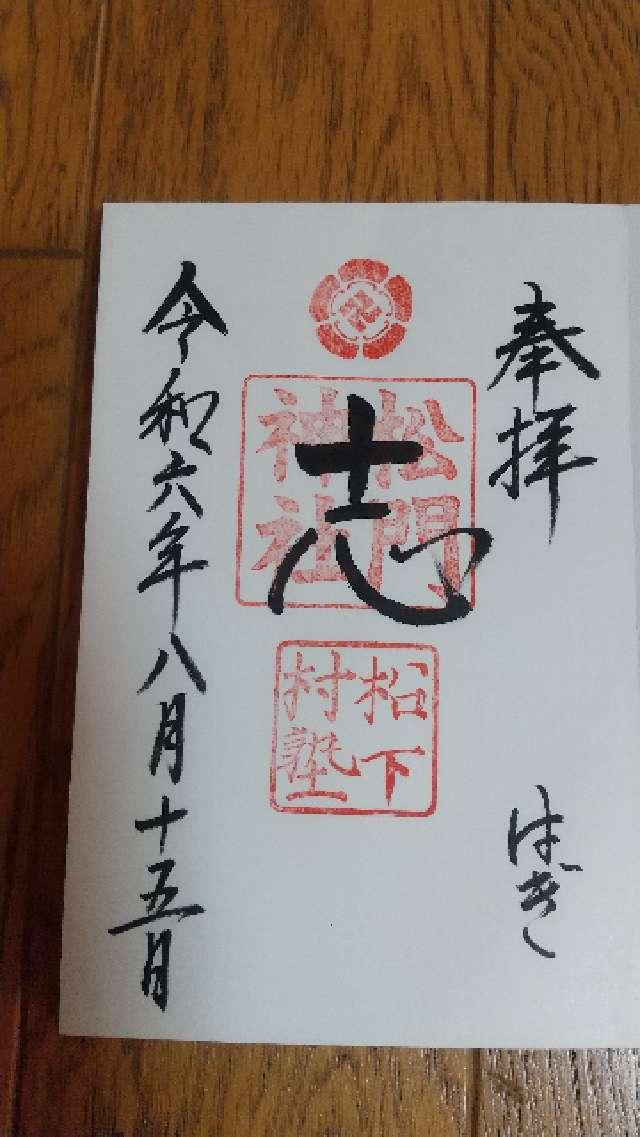 奉拝
はぎ
志
松門
神社
松下
村塾
令和六年八月十五日